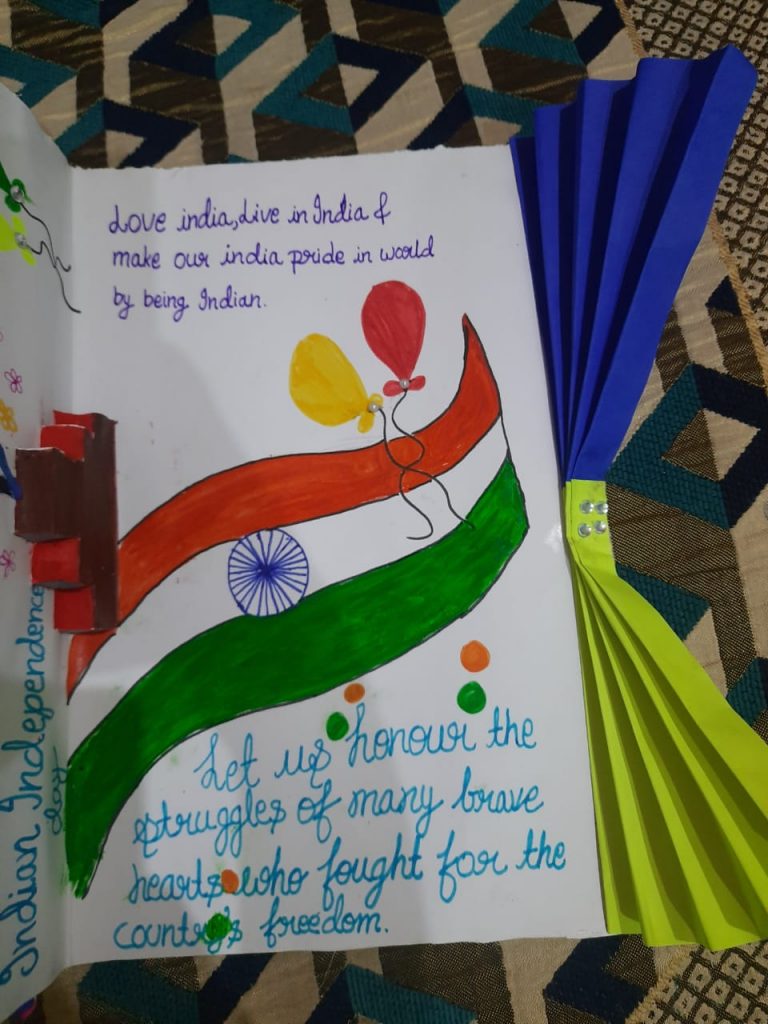 Love india, Live in India &
make our india pride in world
by being Indian.
Let us honour the
struggles of many brave
hearts who fought for the
country's freedom.
Indian Independence
day